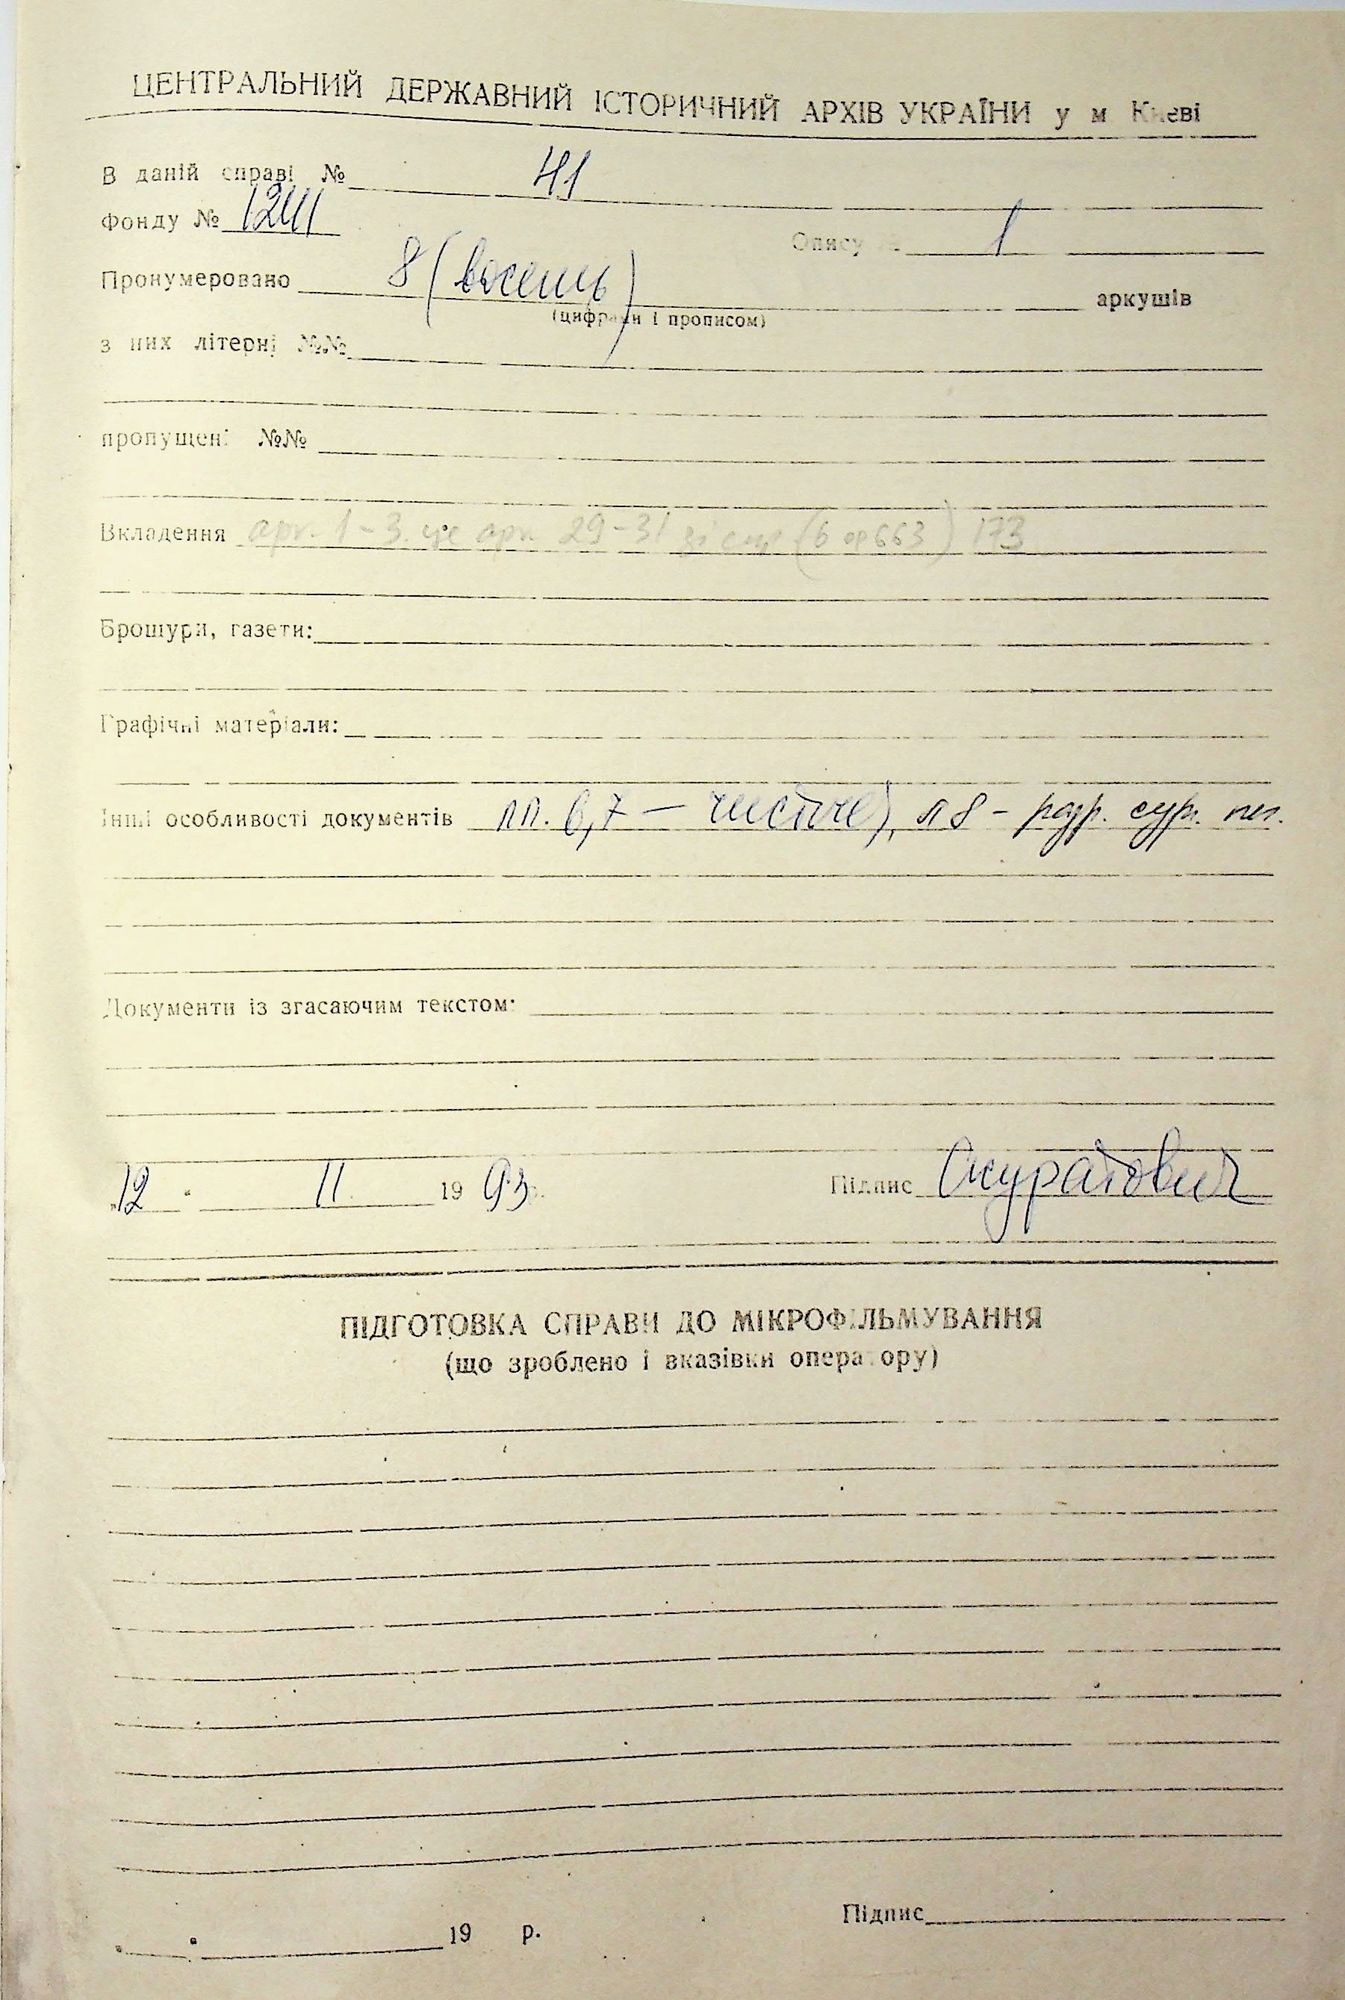 ЦЕНТРАЛЬНИЙ ДЕРЖАВНИЙ ІСТОРИЧНИЙ АРХІВ УКРАЇНИ у м Києві
В даній справі № 41
Фонду № Опису № 1
Пронумеровано 8 (восемь) аркушів
(цифрами і прописом)
з них літерні №№
пропущені №№
Вкладення арк. 1-3. це арк. 29-31 173
Брошури, газети:
Графічні матеріали:
Інші особливості документів лл. 6,7 — чистые, л 8 -
Документи із згасаючим текстом:
"12" 11. 1993р. Підпис Скуратович
ПІДГОТОВКА СПРАВИ ДО МІКРОФІЛЬМУВАННЯ
(що зроблено і вказівки оператору)
Підпис
19 р.